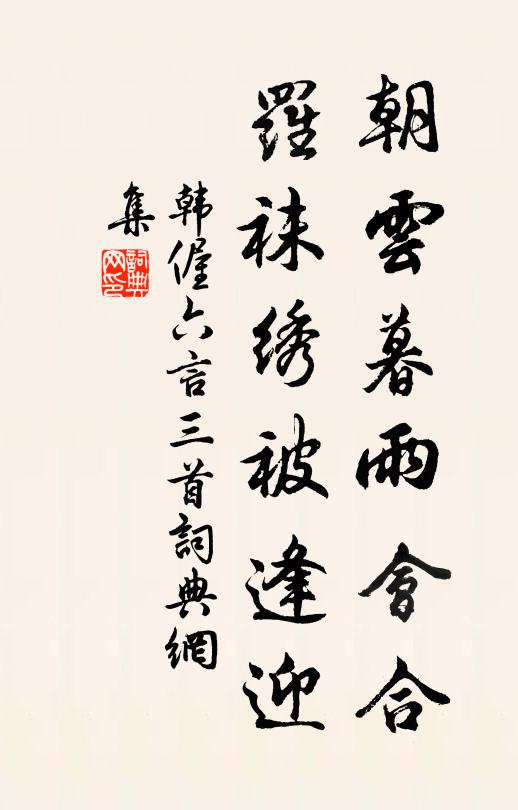 朝雲暮雨會合
羅袜绣被逢迎
韩偓六言三首詞典網
集
詞典
网印